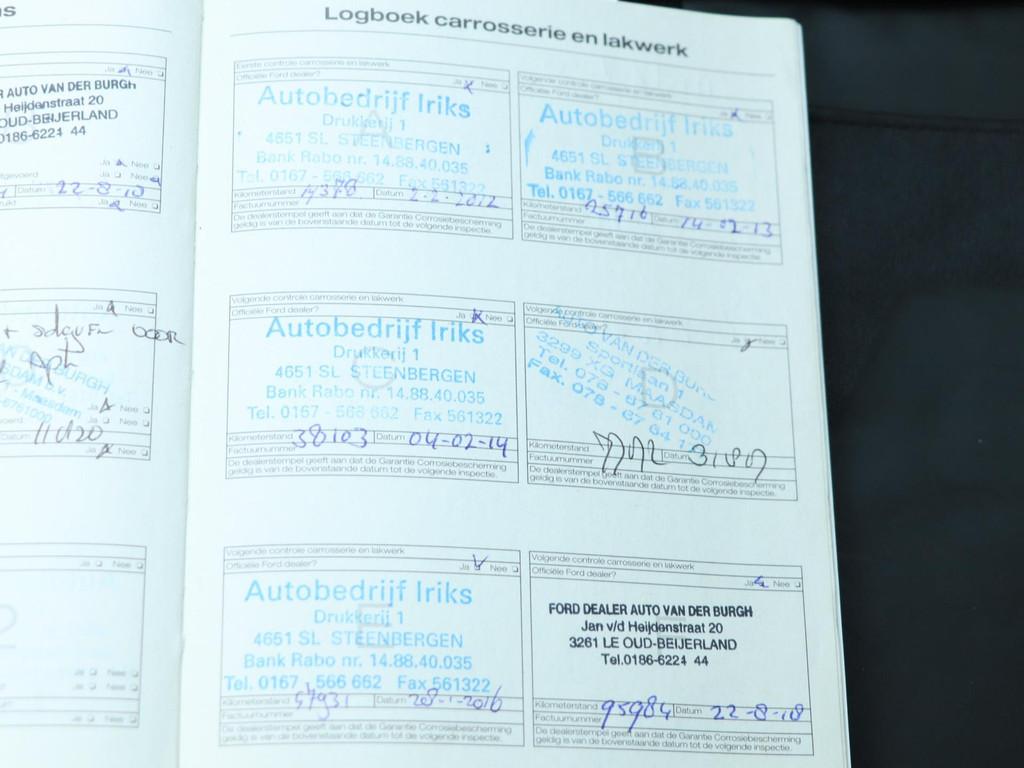 s
Ja Nee
R AUTO VAN DER BURGH
Heijdenstraat 20
OUD-BEIJERLAND
0186-6221 44
Ja Nee
Ja Nee
Datum 22-8-18
Ja Nee
Ja Nee
DOOR
BURGH
Maasdam
Ja Nee
Datum
Ja Nee
Ja Nee
Ja Nee
Ja Nee
Ja Nee
Logboek carrosserie en lakwerk
Eerste controle carrosserie en lakwerk
Officiële Ford dealer? Ja Nee
Autobedrijf Iriks
Drukkerij 1
4651 SL STEENBERGEN
Bank Rabo nr. 14.88.40.035
Tel. 0167 - 566 662 Fax 561322
Kilometerstand 14378 Datum 2-2-2012
Factuurnummer
De dealerstempel geeft aan dat de Garantie Corrosiebescherming
geldig is van de bovenstaande datum tot de volgende inspectie.
Volgende controle carrosserie en lakwerk
Officiële Ford dealer? Ja Nee
Autobedrijf Iriks
Drukkerij 1
4651 SL STEENBERGEN
Bank Rabo nr. 14.88.40.035
Tel. 0167 - 566 662 Fax 561322
Kilometerstand 25716 Datum 14-02-13
Factuurnummer
De dealerstempel geeft aan dat de Garantie Corrosiebescherming
geldig is van de bovenstaande datum tot de volgende inspectie.
Volgende controle carrosserie en lakwerk
Officiële Ford dealer? Ja Nee
Autobedrijf Iriks
Drukkerij 1
4651 SL STEENBERGEN
Bank Rabo nr. 14.88.40.035
Tel. 0167 - 566 662 Fax 561322
Kilometerstand 38103 Datum 04-02-14
Factuurnummer
De dealerstempel geeft aan dat de Garantie Corrosiebescherming
geldig is van de bovenstaande datum tot de volgende inspectie.
Volgende controle carrosserie en lakwerk
Officiële Ford dealer? Ja Nee
VAN DER BUR
Sportlaan 1
3299 XG MAASDAM
Tel. 078 - 67 61 000
Fax. 078 - 67 64 1
Kilometerstand Datum
Factuurnummer
De dealerstempel geeft aan dat de Garantie Corrosiebescherming
geldig is van de bovenstaande datum tot de volgende inspectie.
Volgende controle carrosserie en lakwerk
Officiële Ford dealer? Ja Nee
Autobedrijf Iriks
Drukkerij 1
4651 SL STEENBERGEN
Bank Rabo nr. 14.88.40.035
Tel. 0167 - 566 662 Fax 561322
Kilometerstand 57931 Datum 28-1-2016
Factuurnummer
De dealerstempel geeft aan dat de Garantie Corrosiebescherming
geldig is van de bovenstaande datum tot de volgende inspectie.
Volgende controle carrosserie en lakwerk
Officiële Ford dealer? Ja Nee
FORD DEALER AUTO VAN DER BURGH
Jan v/d Heijdenstraat 20
3261 LE OUD-BEIJERLAND
Tel.0186-6221 44
Kilometerstand 95984 Datum 22-8-18
Factuurnummer
De dealerstempel geeft aan dat de Garantie Corrosiebescherming
geldig is van de bovenstaande datum tot de volgende inspectie.